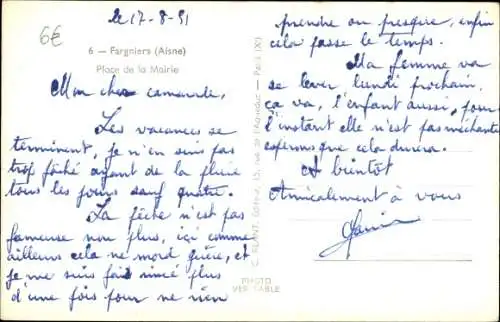 le 17-8-51
6€
6 - Fargniers (Aisne)
Place de la Mairie
Mon cher camarade,
Les vacances se
terminent, je n'en suis pas
trop fâché ayant de la pluie
tous les jours sauf quatre.
La pêche n'est pas
fameuse non plus, ici comme
ailleurs cela ne mord guère, et
je me suis fait rincé plus
d'une fois pour ne rien
C. PLANT. Editeur,
Paris (X)
PHOTO
VERITABLE
prendre ou presque, enfin
cela passe le temps.
Ma femme va
se lever, lundi prochain.
ça va, l'enfant aussi, pour
l'instant elle n'est pas méchante
espérons que cela durera.
A bientôt
Amicalement à vous